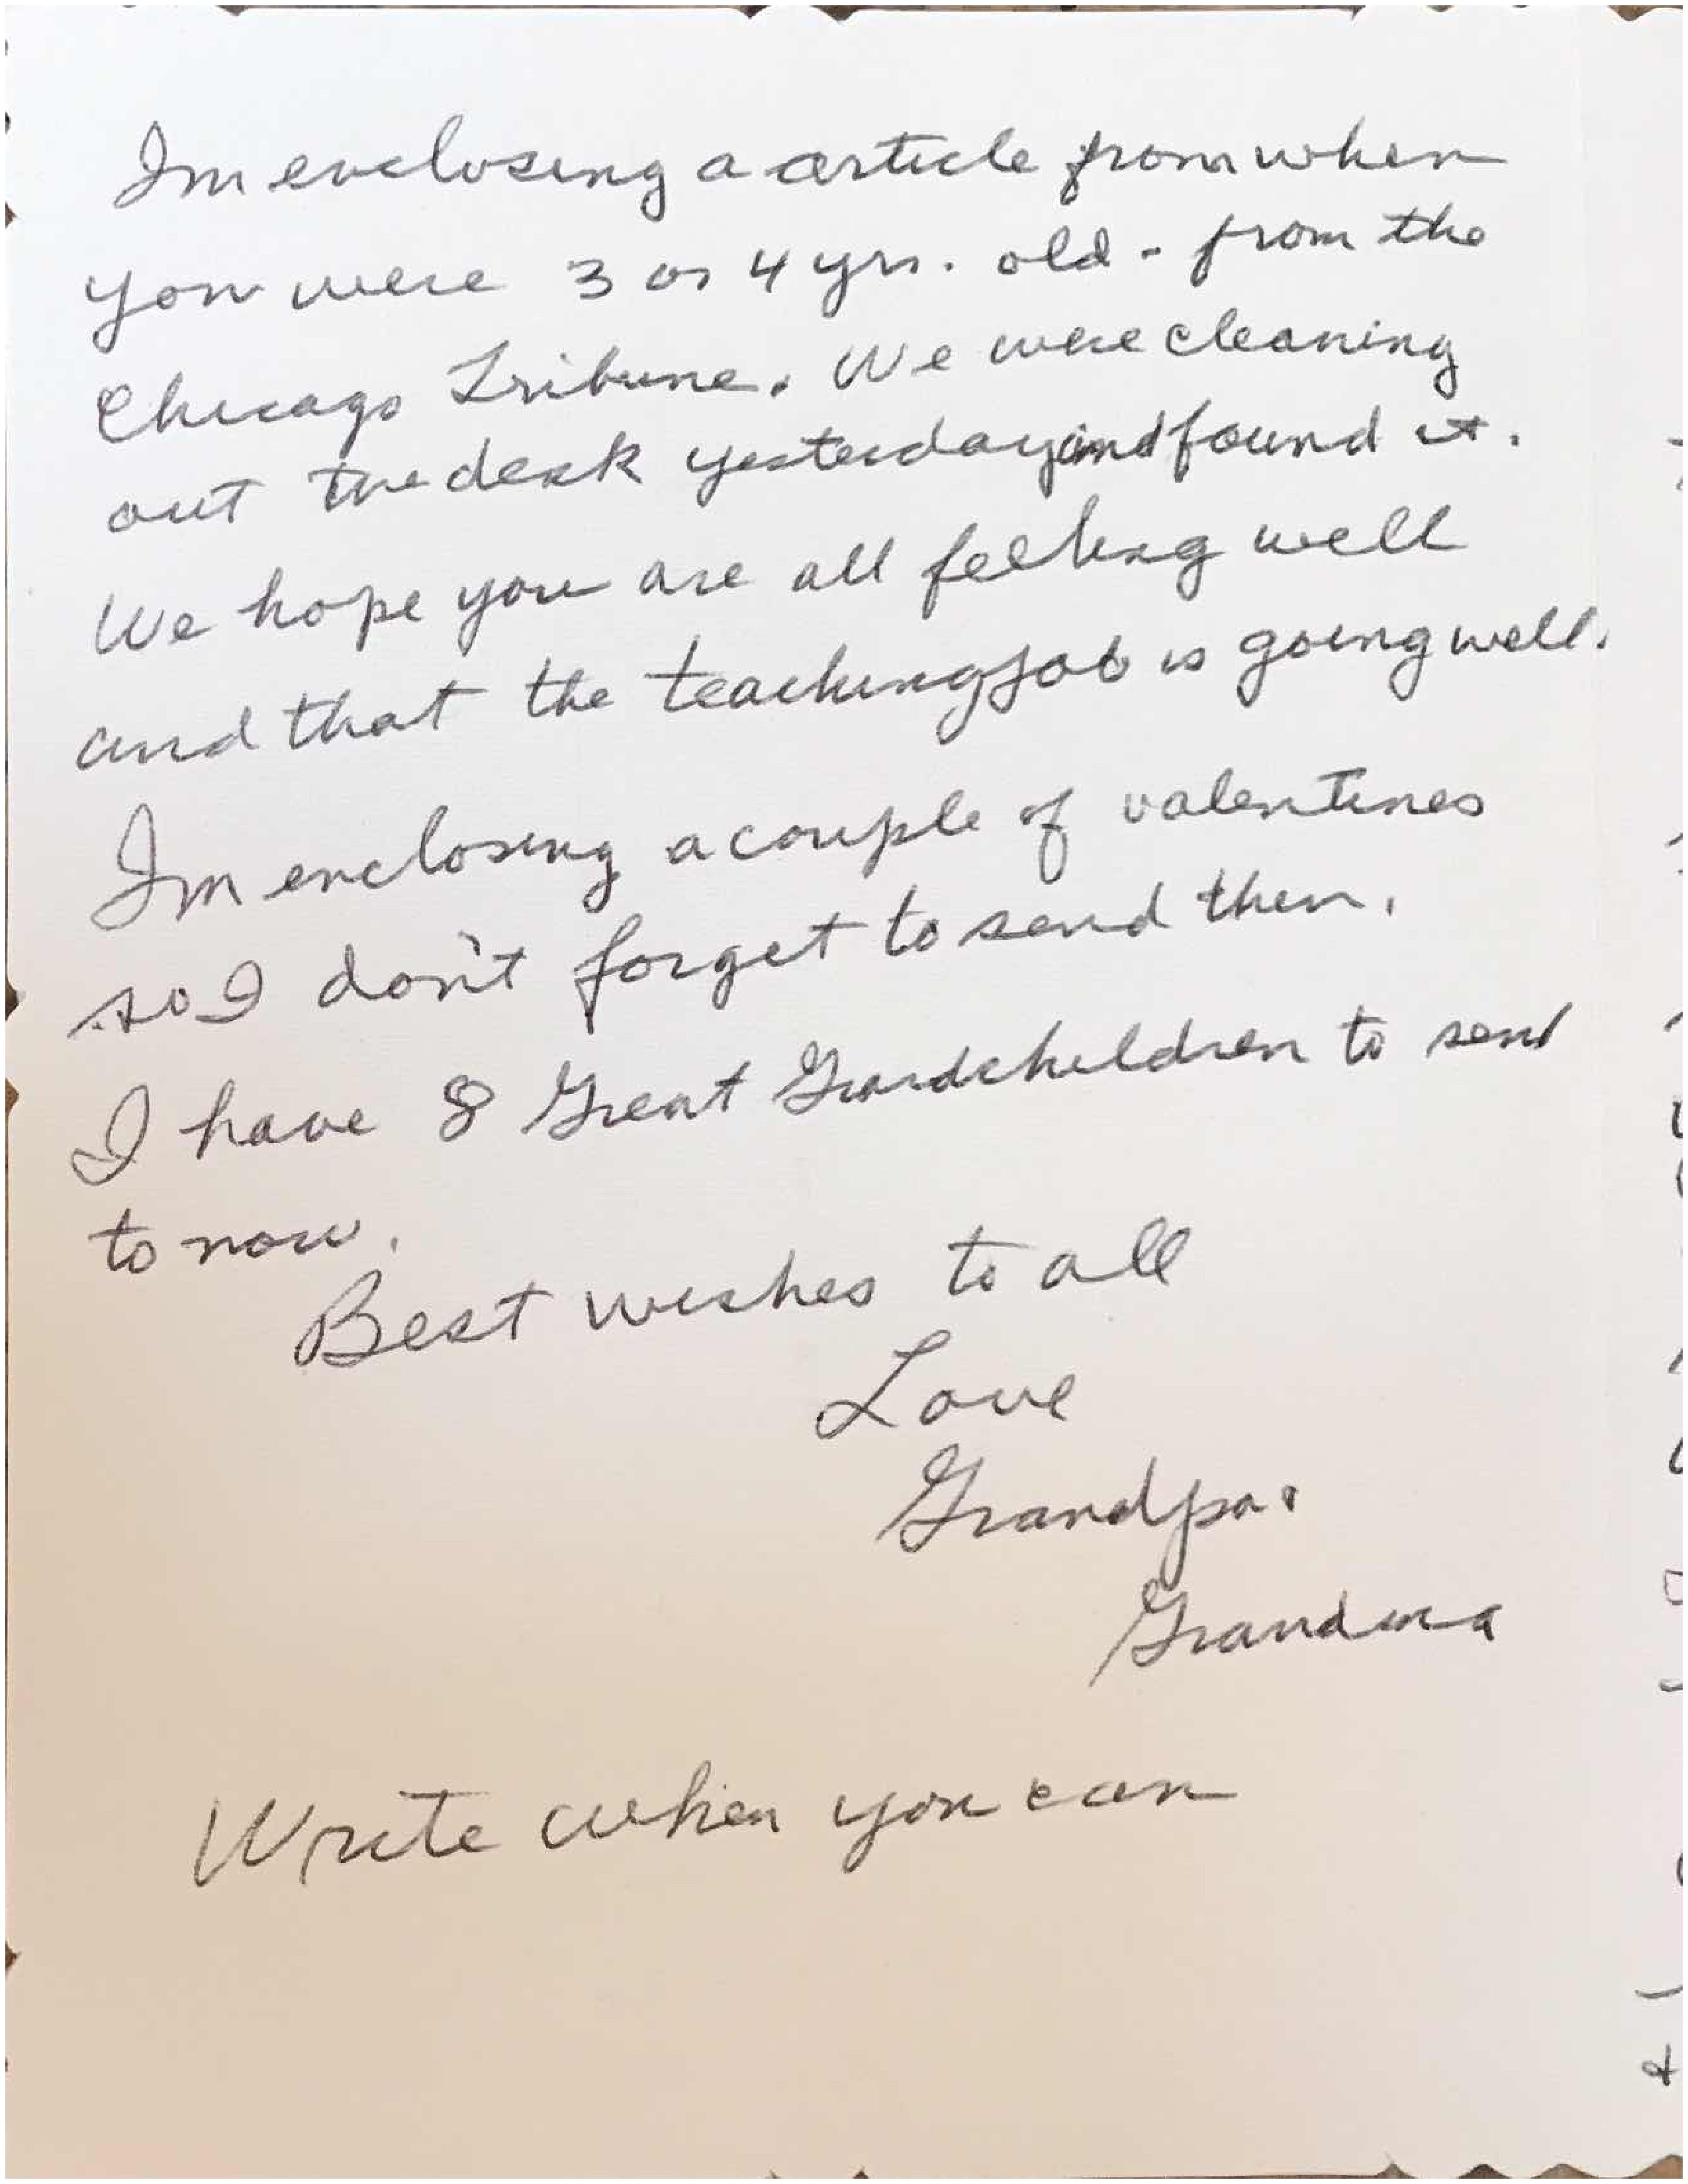 Im enclosing a article from when
you were 3 or 4 yrs. old - from the
Chicago Tribune. We were cleaning
out the desk yesterday and found it.
We hope you are all feeling well
and that the teaching job is going well.
Im enclosing a couple of valentines
so I don't forget to send them.
I have 8 Great Grandchildren to send
to now.
Best wishes to all
Love
Grandpa.
Grandma
Write when you can